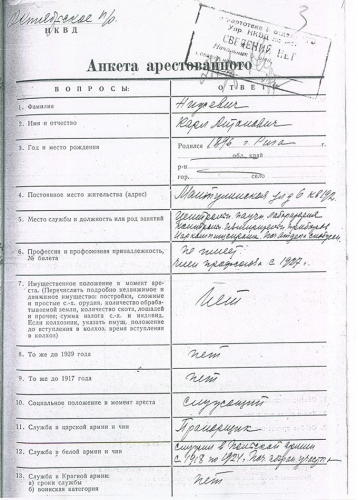 Октябрьское п/о.
НКВД
3
СВЕДЕНИЙ НЕТ
Анкета арестованного
ВОПРОСЫ: ОТВЕТЫ
1. Фамилия
2. Имя и отчество Карл Антонович
3. Год и место рождения Родился 1896 г. Рига г.
обл. край
р-н
гор. село
4. Постоянное место жительства (адрес) ул д 6 кв 192
5. Место службы и должность или род занятий Централън. научн. лаборатория
6. Профессия и профсоюзная принадлежность, № билета Не имеет
член профсоюза с 1927 г.
7. Имущественное положение в момент аре-
ста. (Перечислить подробно недвижимое и
движимое имущество: постройки, сложные
и простые с.-х. орудия, количество обраба-
тываемой земли, количество скота, лошадей
и прочее; сумма налога с.-х. и индивид.
Если колхозник, указать имущ. положение
до вступления в колхоз, время вступления
в колхоз) Нет
8. То же до 1929 года нет
9. То же до 1917 года нет
10. Социальное положение в момент ареста служащий
11. Служба в царской армии и чин Прапорщик
12. Служба в белой армии и чин служил в Польской армии
с 1918 по 1924.
13. Служба в Красной армии: Нет
а) сроки службы
б) воинская категория